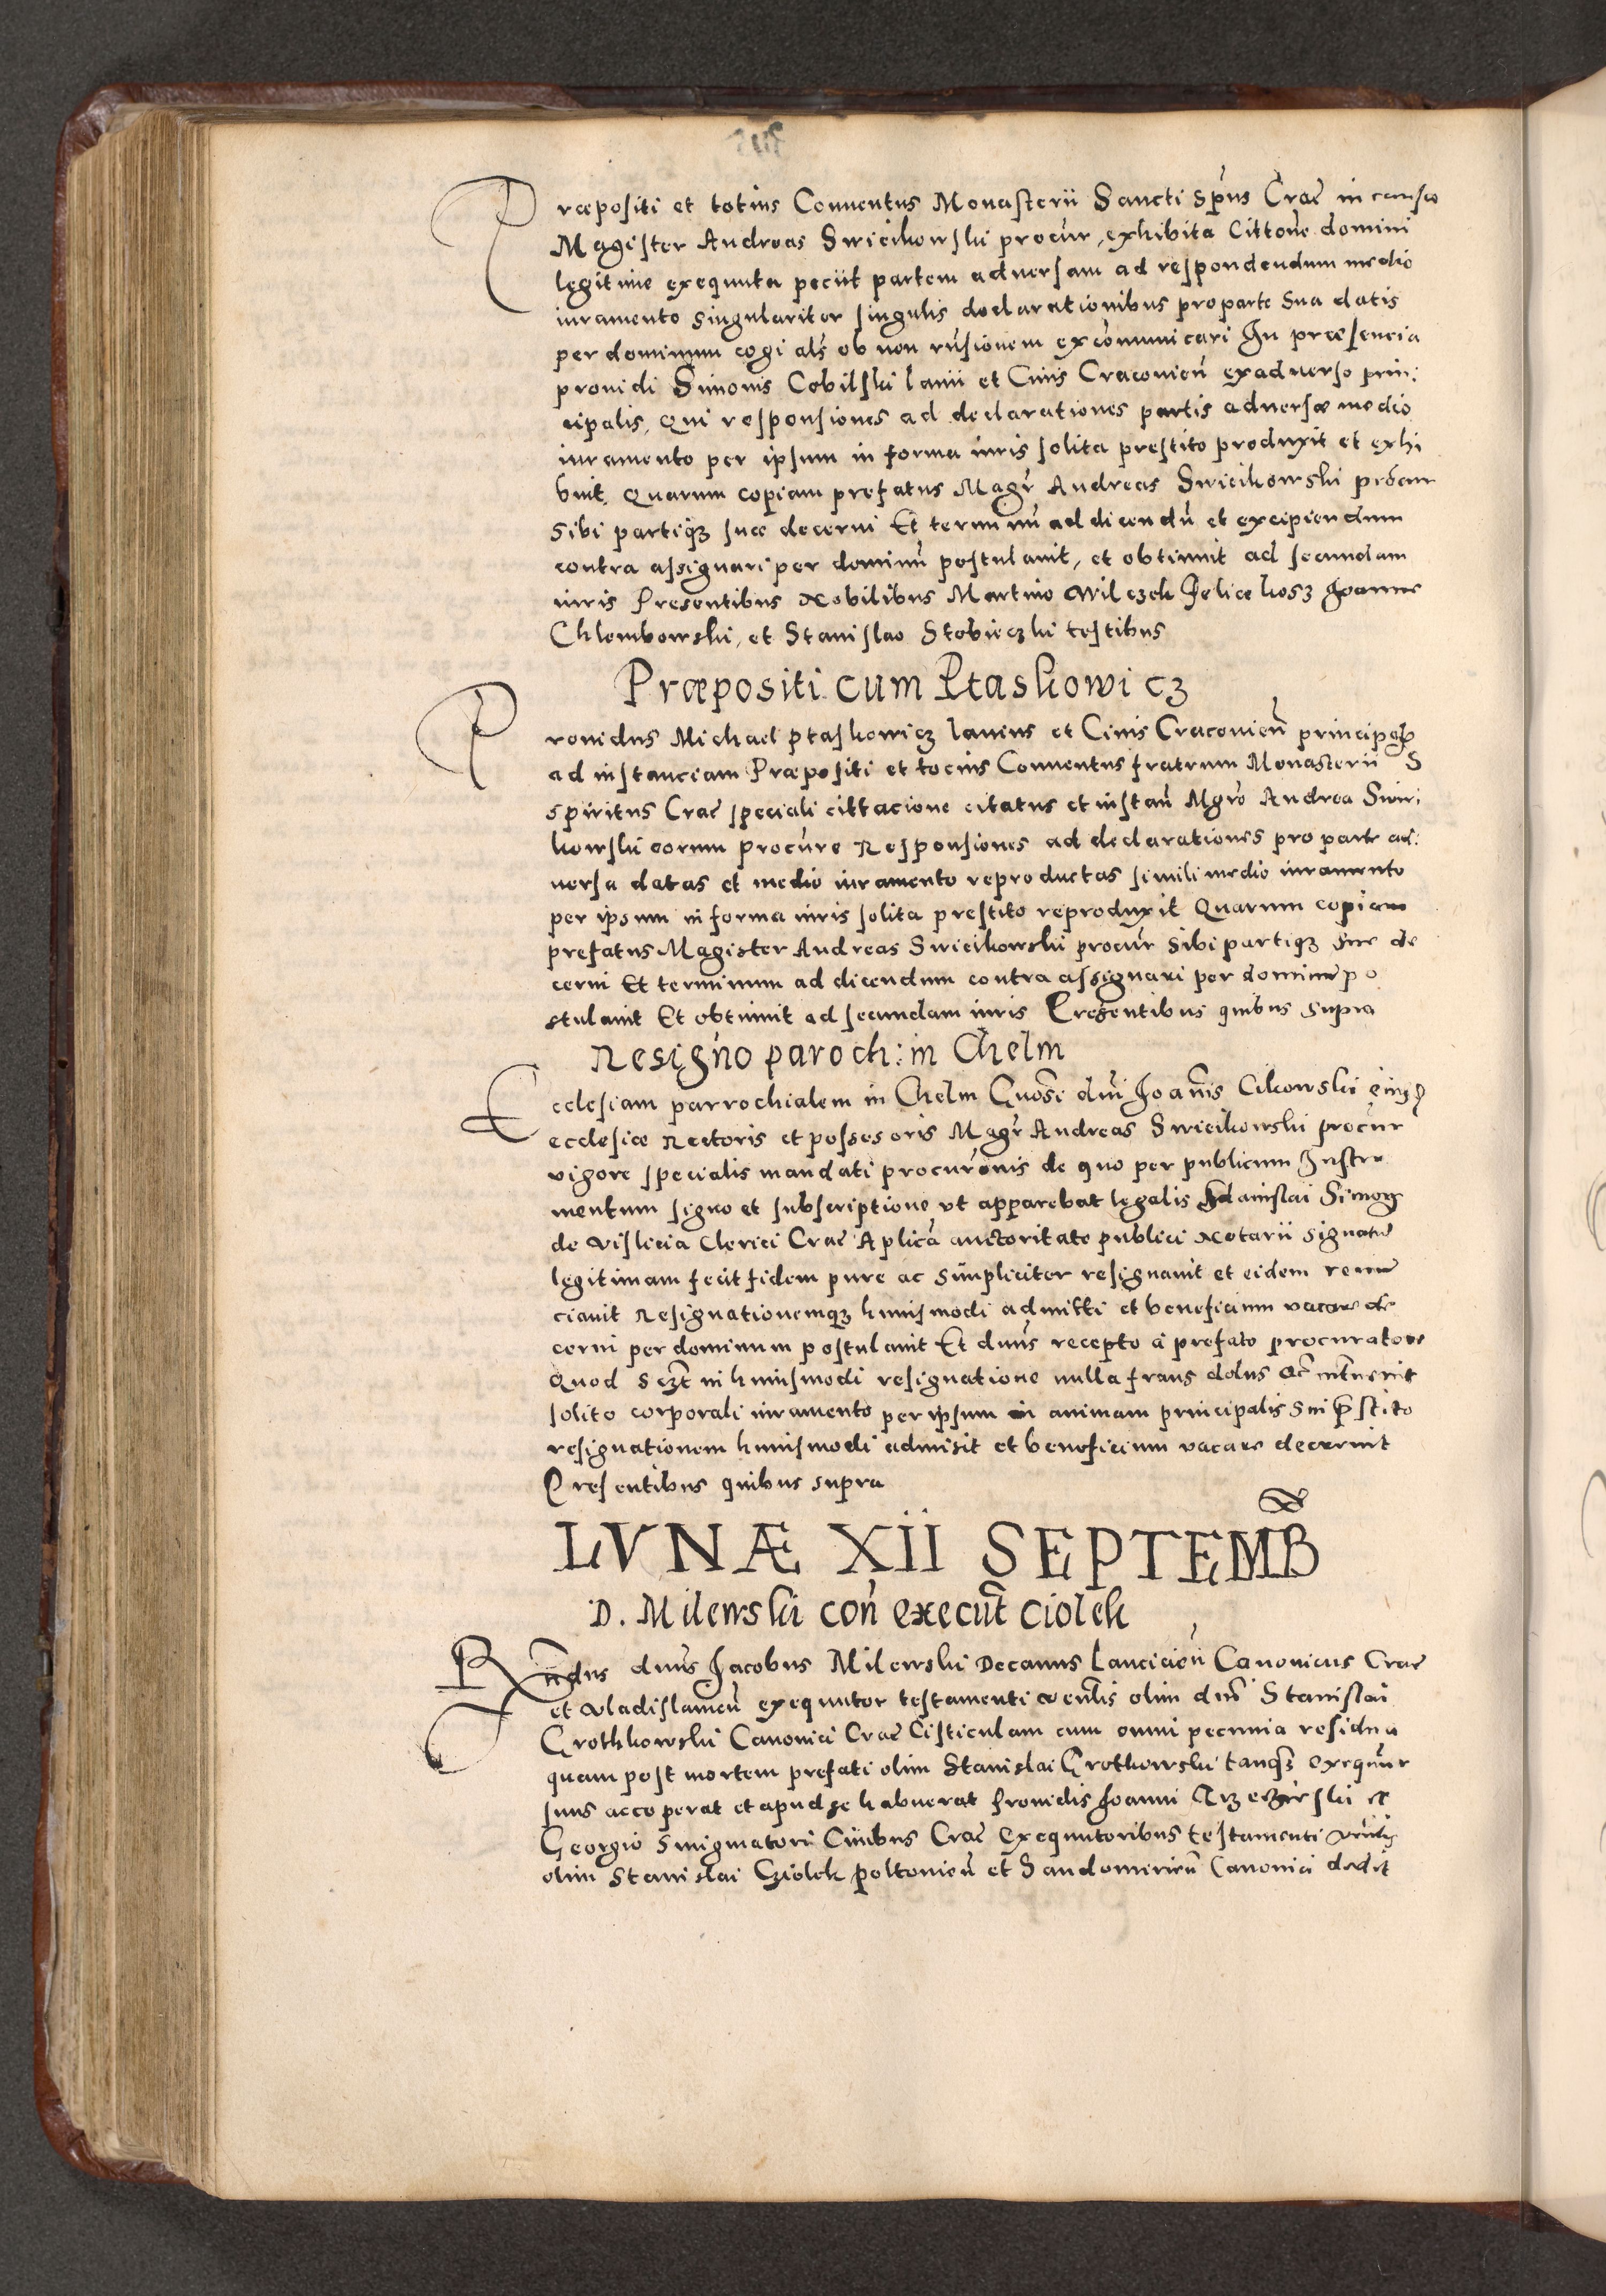 Præpositi et totius Conuentus Monasterii Sancti Sp̃us Crac̃ in causa
Magister Andreas Swiecikowski procur̃, exhibita Citton̄e domini
legitime exequuta peciit partem aduersam ad respondendum medio
iuramento singulariter singulis declarationibus pro parte sua datis
per dominum cogi al̃s ob non rñsionem excom̃unicari In præsencia
prouidi Simonis Cobilski lanii et Ciuis Cracouien̄ ex aduerso prin:
cipalis, Qui responsiones ad declarationes partis aduersæ medio
iuramento per ipsum in forma iuris solita prestito produxit et exhi
buit, Quarum copiam prefatus Magr̃ Andreas Swiecikowski procur̃
sibi partiqʒ suæ decerni Et terminū ad dicendū et excipiendum
contra assignari per dominū postulauit, et obtinuit ad secundam
iuris Presentibus Nobilibus Martino Wilczek Felice kosz Joanne
Chlembowski, et Stanislao Stobieczki testibus
Præpositi cum Ptaskowicz
Prouidus Michael ptaskowicz lanius et Ciuis Cracouien̄ principal̃
ad instanciam Præpositi et tocius Conuentus fratrum Monasterii S
spiritus Crac̃ speciali cittacione citatus et instan̄ Mgr̃o Andrea Swie:
kowski eorum procur̃e Responsiones ad declarationes pro parte ad:
uersa datas et medio iuramento reproductas simili medio iuramento
per ipsum in forma iuris solita prestito reproduxit Quarum copiam
prefatus Magister Andreas Swiecikowski procur̃ sibi partiqʒ sue de
cerni Et terminum ad dicendum contra assignari per dominū po
stulauit Et obtinuit ad secundam iuris Presentibus quibus supra
Resign̄o paroch: in Chelm
Ecclesiam parrochialem in Chelm Gñosi dn̄i Joan̄is Cikowski eius
ecclesiæ Rectoris et possesoris Magr̃ Andreas Swiecikowski procur̃
vigore specialis mandati procurōnis de quo per publicum Instru
mentum signo et subscriptione vt apparebat legalis Stanislai Simon
de Vislicia Clerici Crac̃ Aplicā auctoritate publici Notarii signatū
legitimam fecit fidem pure ac simpliciter resignauit et eidem renun
ciauit Resignationemqʒ huiusmodi admitti et beneficium vacare de
cerni per dominum postulauit Et dn̄s recepto a prefato procuratore
Quod in huiusmodi resignatione nulla fraus dolus etc̃ interuenit
solito corporali iuramento per ipsum in animam principalis sui p̃stito
resignationem huiusmodi admisit et beneficium vacare decernit
Presentibus quibus supra
LVNÆ XII SEPTEMB̃
D. Milewski con̄ execut̃ Ciolek
Rn̄dus dn̄s Jacobus Milewski Decanus Lancicien̄ Canonicus Crac̃
et Vladislauien̄ exequutor testamenti olim dn̄i Stanislai
Grothkowski Canonici Crac̃ Cisticulam cum omni pecunia residua
quam post mortem prefati olim Stanislai Grotkowski tanqʒ exequutor
suus acceperat et apud se habuerat Prouidis Joanni et
Georgio Smigmatori Ciuibus Crac̃ Exequutoribus testamenti
olim Stanislai Cziolek poltouien̄ et Sandomirien̄ Canonici dedit